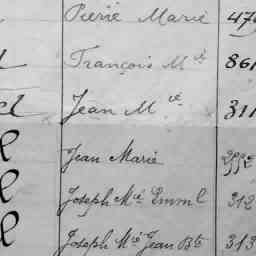 Pierre Marie 47
François M ié 861
Jean M ié 311
Jean Marie
Joseph M ié Emml 312
Joseph M ié Jean Bte 313